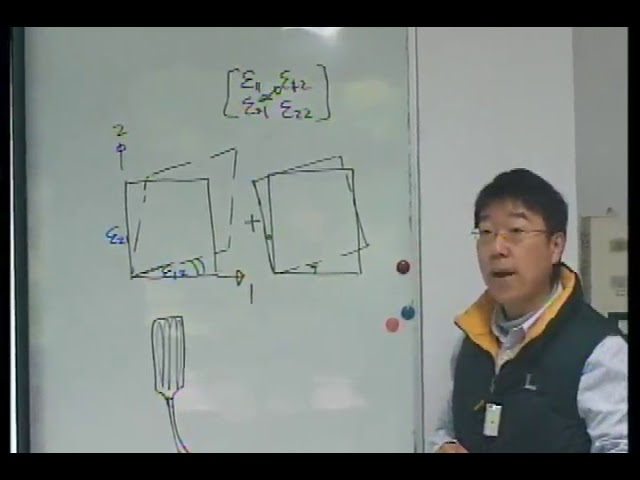 ε11 ε12
ε21 ε22
2
ε2
+
ε12
1
L